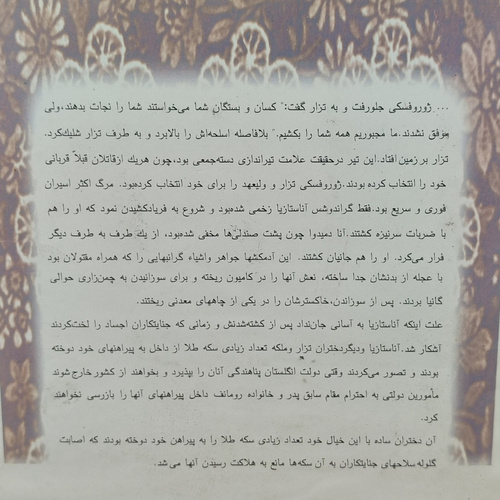 ... ژوروفسکی جلورفت و به تزار گفت:" کسان و بستگان شما می‌خواستند شما را نجات بدهند،ولی
موفق نشدند.ما مجبوریم همه شما را بکشیم." بلافاصله اسلحه‌اش را بالابرد و به طرف تزار شلیک‌کرد.
تزار بر زمین افتاد.این تیر درحقیقت علامت تیراندازی دسته‌جمعی بود،چون هریک ازقاتلان قبلاً قربانی
خود را انتخاب کرده بودند.ژوروفسکی تزار و ولیعهد را برای خود انتخاب کرده‌بود. مرگ اکثر اسیران
فوری و سریع بود.فقط گراندوشس آناستازیا زخمی شده‌بود و شروع به فریادکشیدن نمود که او را هم
با ضربات سرنیزه کشتند.آنا دمیدوا چون پشت صندلی‌ها مخفی شده‌بود، از یک طرف به طرف دیگر
فرار می‌کرد. او را هم جانیان کشتند. این آدمکشها جواهر واشیاء گرانبهایی را که همراه مقتولان بود
با عجله از بدنشان جدا ساخته، نعش آنها را در کامیون ریخته و برای سوزانیدن به چمن‌زاری حوالی
گانیا بردند. پس از سوزاندن،خاکسترشان را در یکی از چاههای معدنی ریختند.
علت اینکه آناستازیا به آسانی جان‌نداد پس از کشته‌شدنش و زمانی که جنایتکاران اجساد را لخت‌کردند
آشکار شد.آناستازیا ودیگردختران تزار وملکه تعداد زیادی سکه طلا از داخل به پیراهنهای خود دوخته
بودند و تصور می‌کردند وقتی دولت انگلستان پناهندگی آنان را بپذیرد و بخواهند از کشور خارج شوند
مأمورین دولتی به احترام مقام سابق پدر و خانواده رومانف داخل پیراهنهای آنها را بازرسی نخواهند
کرد.
آن دختران ساده با این خیال خود تعداد زیادی سکه طلا را به پیراهن خود دوخته بودند که اصابت
گلوله سلاحهای جنایتکاران به آن سکه‌ها مانع به هلاکت رسیدن آنها می شد.